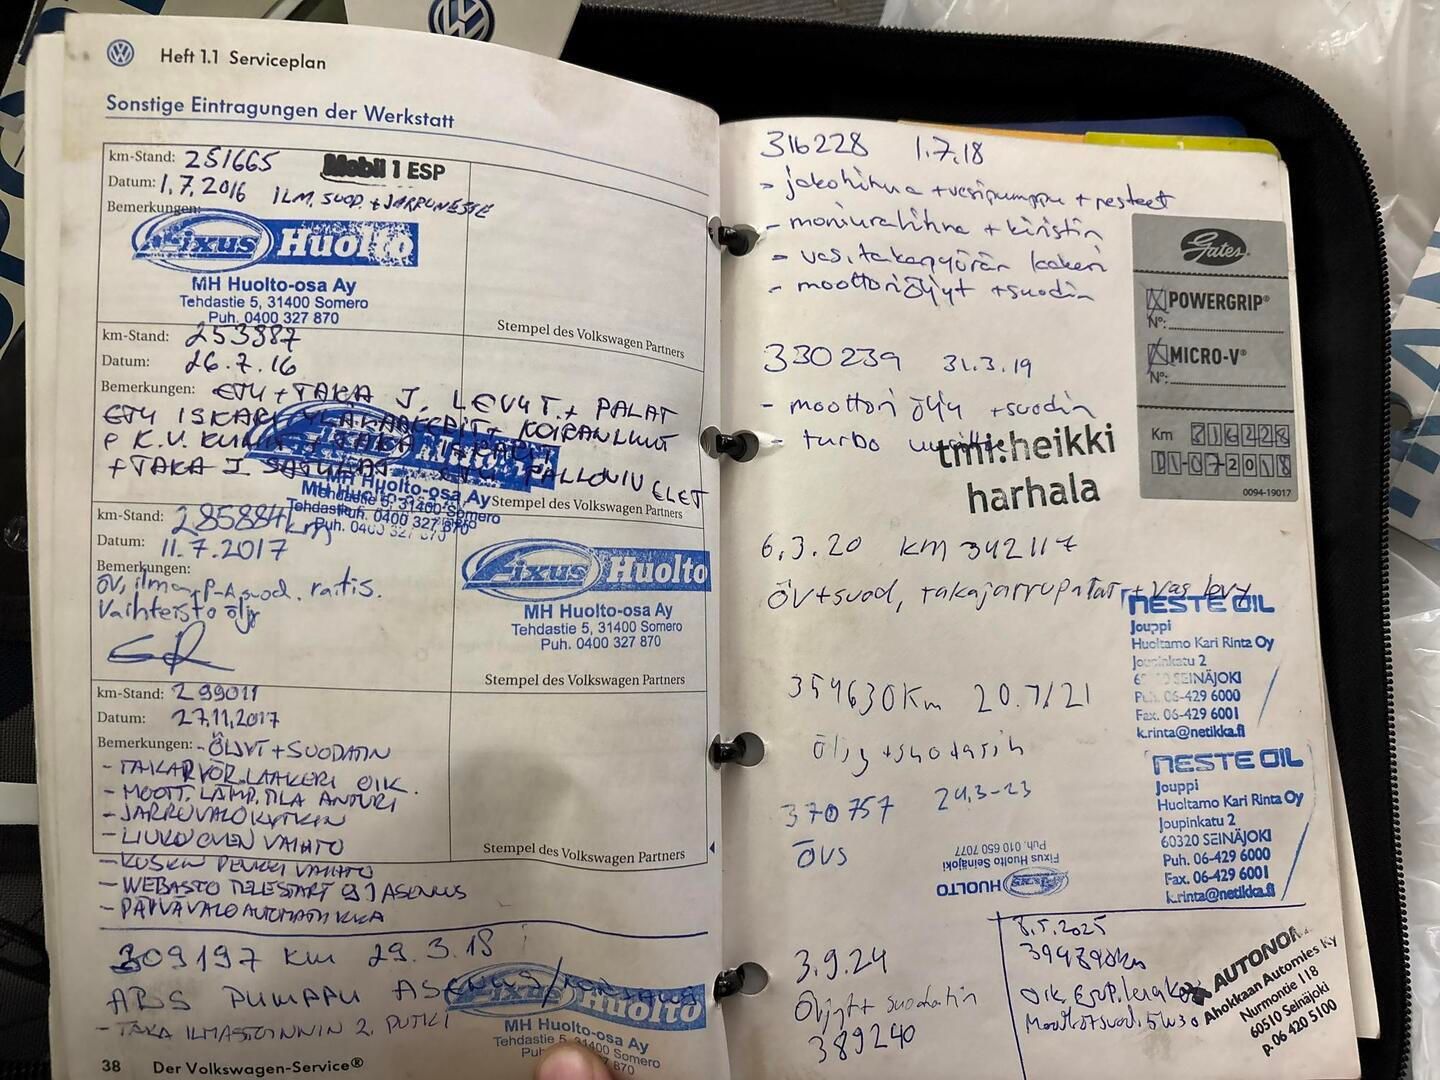 Heft 1.1 Serviceplan
Sonstige Eintragungen der Werkstatt
km-Stand: 251665
Mobil 1 ESP
Datum: 1.7.2016 ILM. SUOD. + JARRUNESTE
Bemerkungen:
Fixus Huolto
MH Huolto-osa Ay
Tehdastie 5, 31400 Somero
Puh. 0400 327 870
Stempel des Volkswagen Partners
km-Stand: 253987
Datum: 26.7.16
Bemerkungen: ETU + TAKA J. LEVYT + PALAT
ETU ISKARI YLÄLAAKERIT + KOIRANLUUT
+ TAKA J. PALLONIVELET
MH Huolto-osa Ay
Tehdastie 5, 31400 Somero
Puh. 0400 327 870
Stempel des Volkswagen Partners
km-Stand: 285884 km
Datum: 11.7.2017
Bemerkungen:
öv, ilma, P-A suod. raitis.
Vaihteisto öljy
Fixus Huolto
MH Huolto-osa Ay
Tehdastie 5, 31400 Somero
Puh. 0400 327 870
Stempel des Volkswagen Partners
km-Stand: 299011
Datum: 27.11.2017
Bemerkungen: - ÖLJYT + SUODATIN
- TAKAPYÖR. LAAKERI OIK.
- MOOTT. LÄMP. TILA ANTURI
- JARRUVALOKYTKIN
- LIUKUOVEN VAIHTO
- KUSKIN PENKKI VAIHTO
- WEBASTO TELESTART 91 ASENNUS
- PÄIVÄVALOAUTOMATIIKKA
Stempel des Volkswagen Partners
309197 km 29.3.18
ABS PUMPPU
- TAKA ILMASTOINNIN 2. PUTKI
Fixus Huolto
MH Huolto-osa Ay
Tehdastie 5, 31400 Somero
38 Der Volkswagen-Service®
316228 1.7.18
- jakohihna + vesipumppu + nesteet
- moniurahihna + kiristin
- vas. takapyörän laakeri
- moottoriöljyt + suodin
Gates
POWERGRIP®
N°:
MICRO-V®
N°:
Km 316228
01-07-2018
0094-19017
330239 31.3.19
- moottoriöljy + suodin
- turbo
tmi:heikki
harhala
6.3.20 km 342117
Öv+suod, takajarrupalat + vas levy
NESTE OIL
Jouppi
Huoltamo Kari Rinta Oy
Joupinkatu 2
SEINÄJOKI
Puh. 06-429 6000
Fax. 06-429 6001
k.rinta@netikka.fi
354630 Km 20.7/21
Öljy + suodatin
NESTE OIL
Jouppi
Huoltamo Kari Rinta Oy
Joupinkatu 2
60320 SEINÄJOKI
Puh. 06-429 6000
Fax. 06-429 6001
k.rinta@netikka.fi
370757 24.3-23
ÖVS
Fixus HUOLTO
Fixus Huolto Seinäjoki
Puh. 010 650 7077
3.9.24
Öljyt + suodatin
389240
8.5.2025
394890km
Moott.ötsuod. 5W30
Ahokkaan Automies Ky
Nurmontie 118
60510 Seinäjoki
p. 06 420 5100